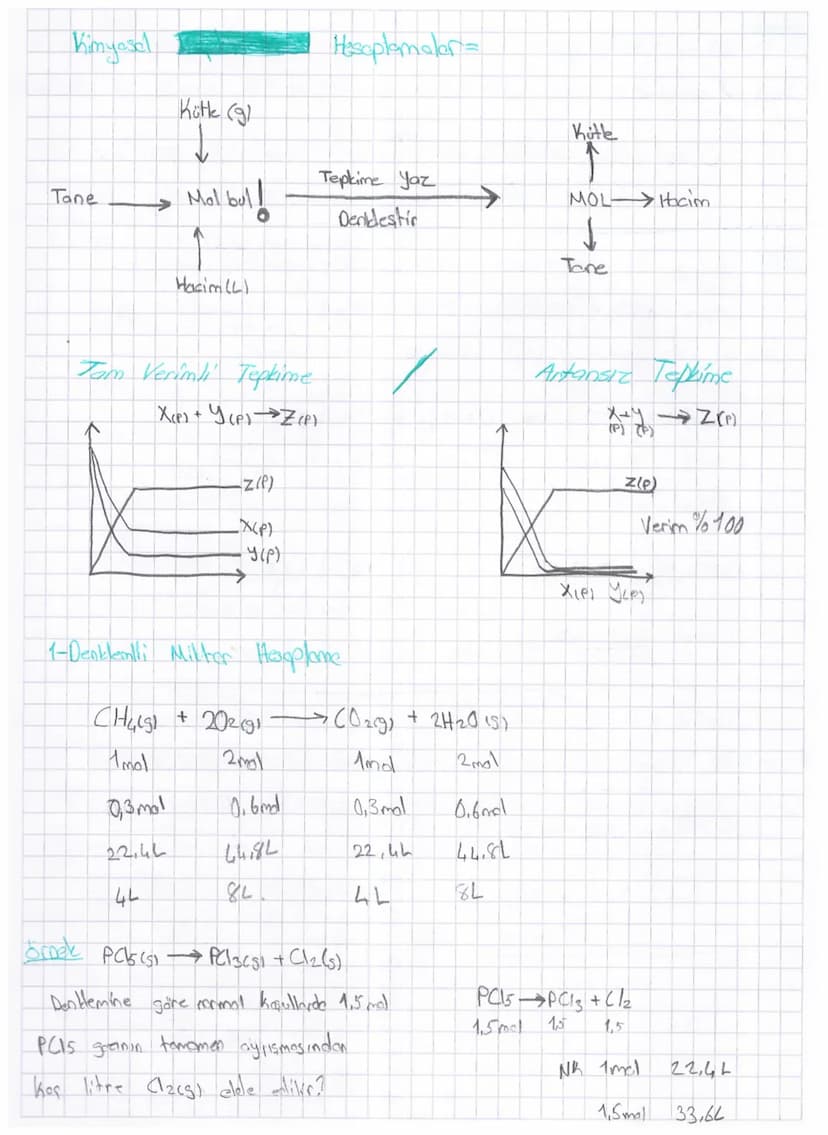 Kimyasal Hesaplamalar=
Kütle (g)
Tane → Mol bul!
Hacim (L)
Tepkime yaz
Denkleştir
Kütle
MOL → Hacim
Tane
Tam Verimli Tepkime / Artansız Tepkime
X(p) + Y(p) → Z(p)
Z(p)
X(p)
Y(p)
X + Y → Z(p)
(p) (p)
Z(p)
Verim %100
X(p) Y(p)
1-Denklemli Miktar Hesaplama
CH4(g) + 2O2(g) → CO2(g) + 2H2O(s)
1mol 2mol 1mol 2mol
0,3mol 0,6mol 0,3mol 0,6mol
22,4L 44,8L 22,4L 44,8L
4L 8L. 4L 8L
Örnek PCl5(s) → PCl3(g) + Cl2(s)
Denklemine göre normal koşullarda 1,5mol
PCl5 gazının tamamen ayrışmasından
kaç litre Cl2(g) elde edilir?
PCl5 → PCl3 + Cl2
1,5mol 1,5 1,5
NK 1mol 22,4L
1,5mol 33,6L